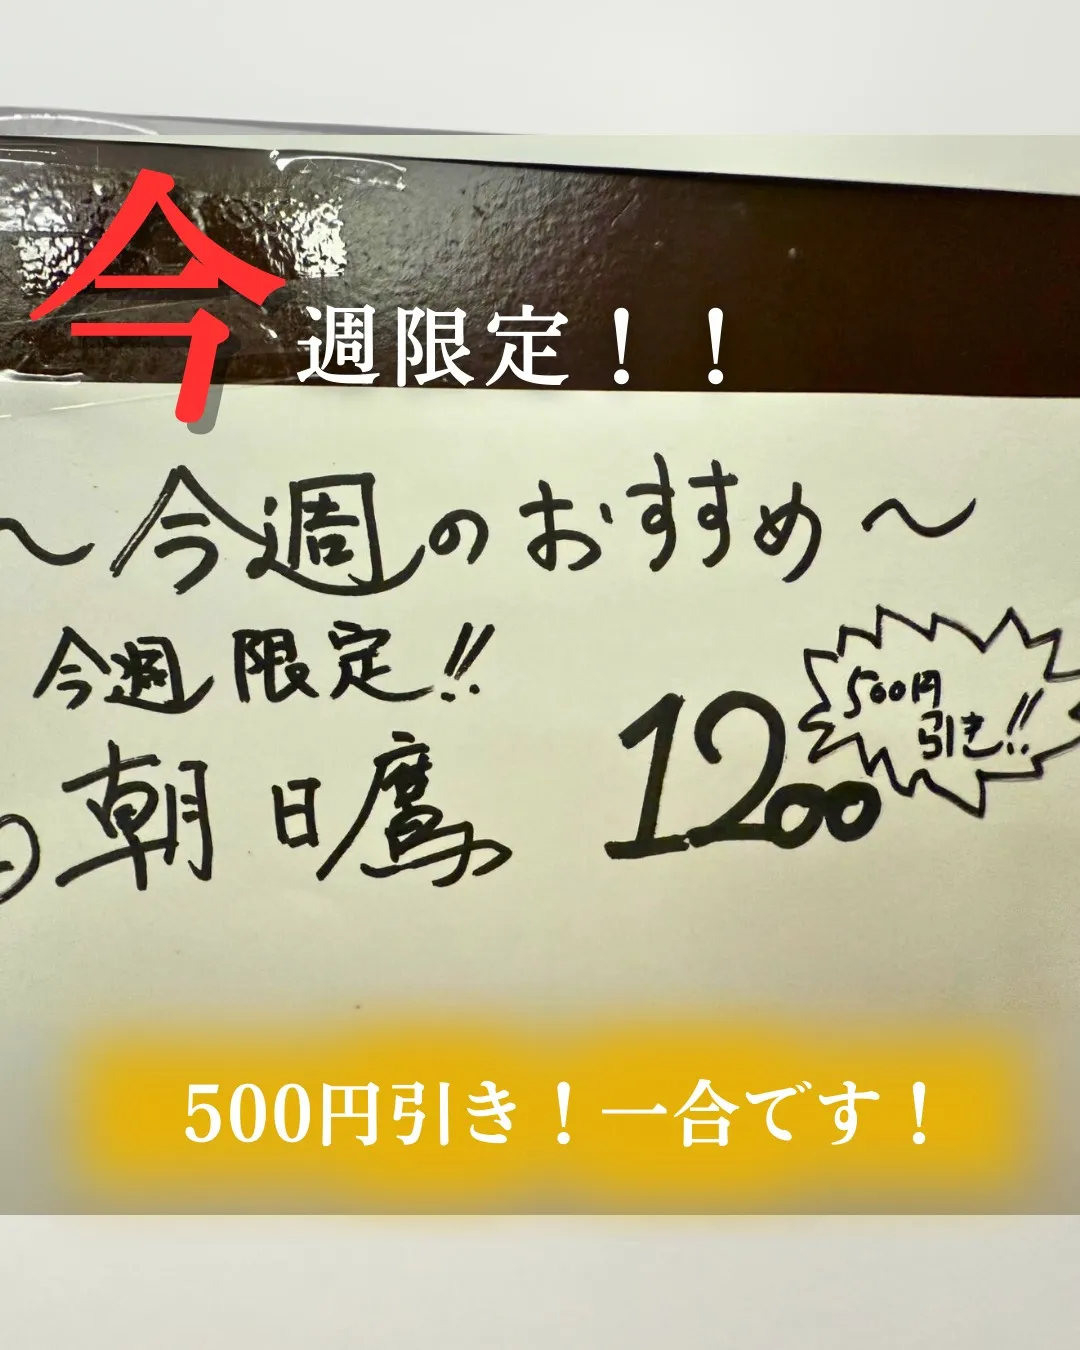 今週限定！！
〜今週のおすすめ〜
今週限定!!
朝日鷹 1200
500円
引き!!
500円引き！一合です！